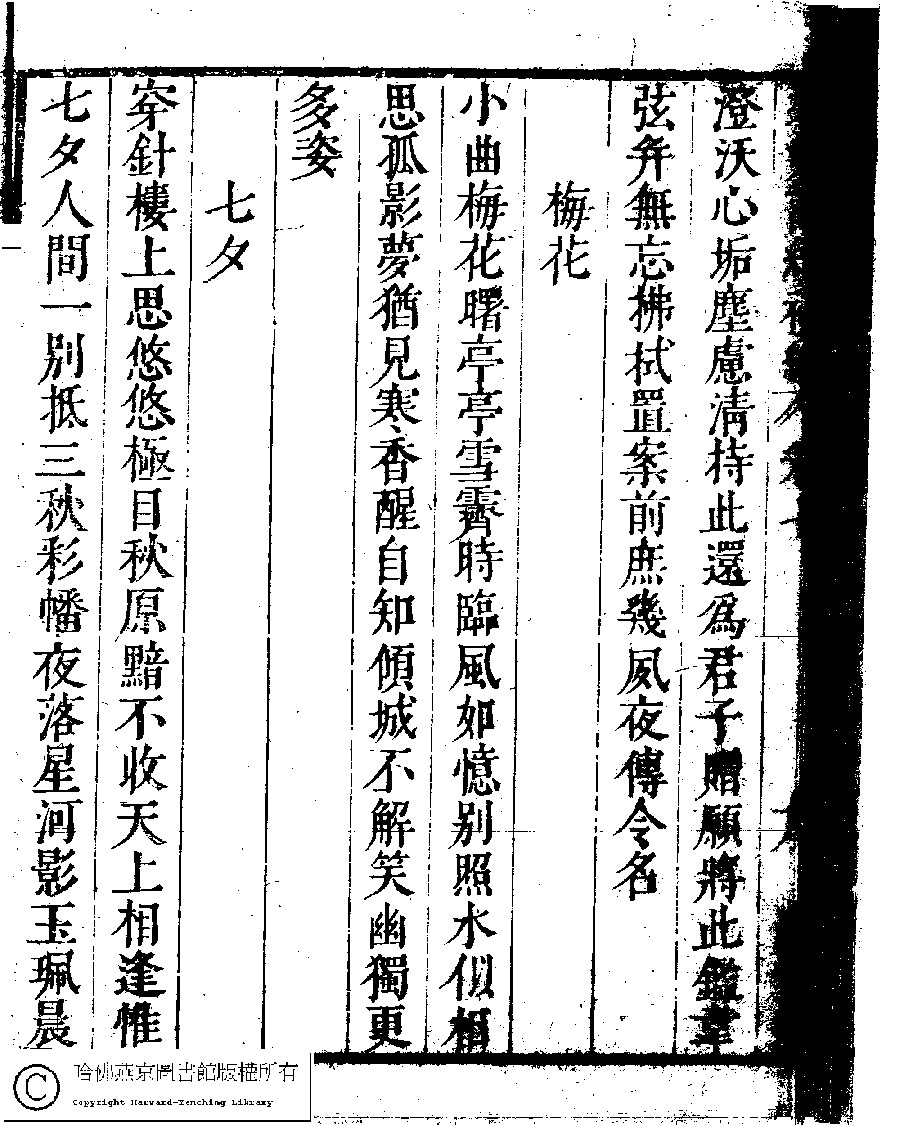 澄沃心垢塵慮清持此還為君子贈願將此鑑韋
弦弁無忘拂拭置案前庶幾夙夜傳令名
梅花
小曲梅花曙亭亭雪霽時臨風如憶別照水似相
思孤影夢猶見寒香醒自知傾城不解笑幽獨更
多姿
七夕
穿針樓上思悠悠極目秋原黯不收天上相逢惟
七夕人間一別抵三秋彩幡夜落星河影玉珮晨
哈佛燕京圖書館版權所有
Copyright Harvard-Yenching Library